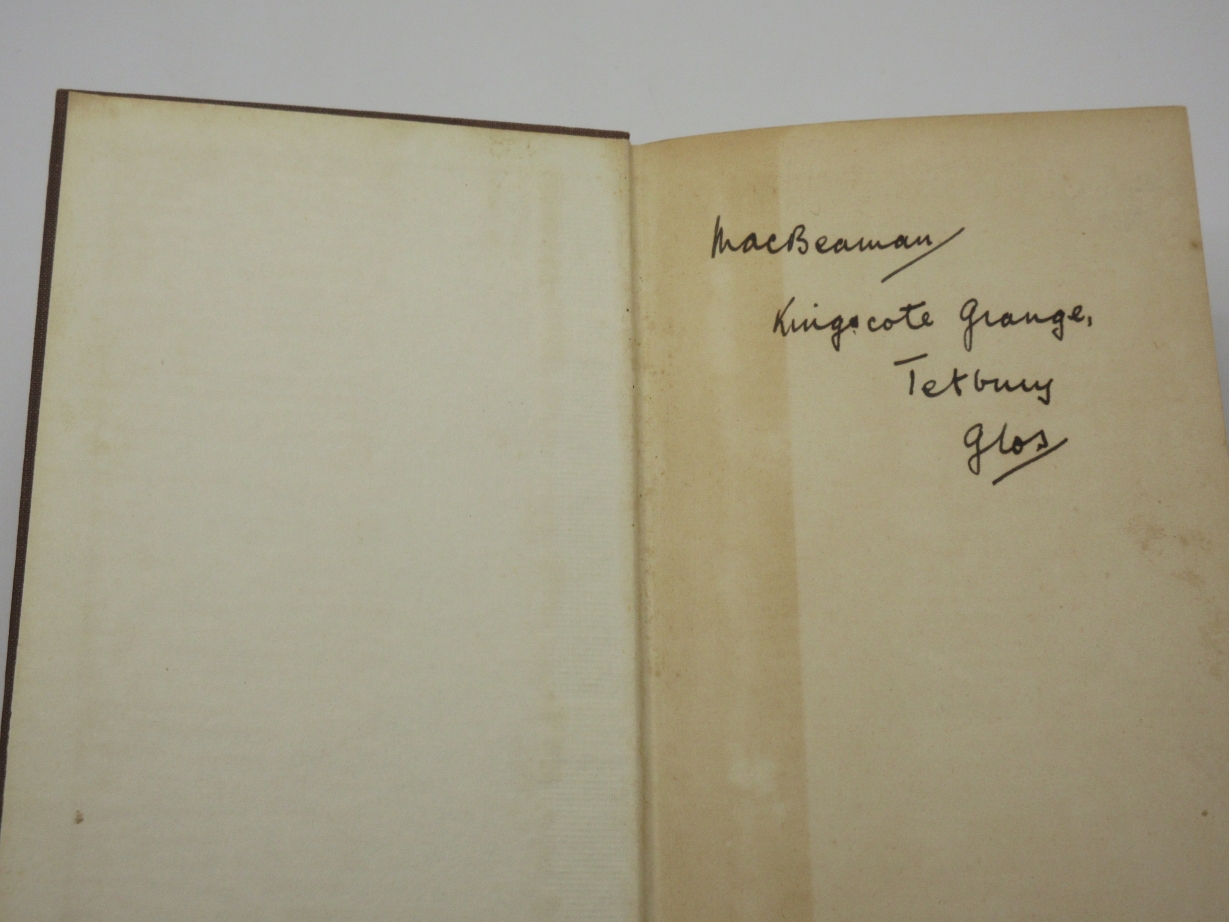 MacBeaman
Kingscote Grange,
Tetbury
Glos